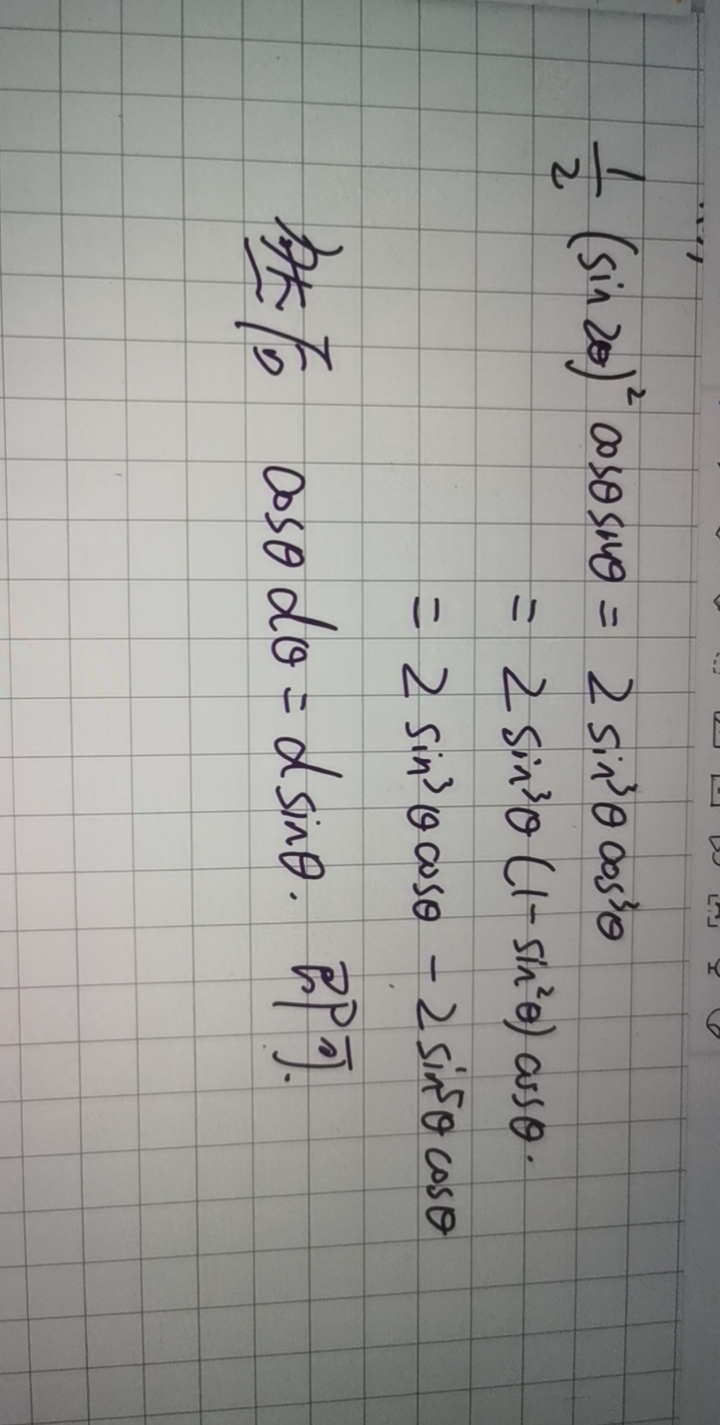 1/2 (sin 2θ)² cosθ sinθ = 2 sin³θ cos³θ
= 2 sin³θ (1 - sin²θ) cosθ.
= 2 sin³θ cosθ - 2 sin⁵θ cosθ
然后 cosθ dθ = d sinθ. 即可.